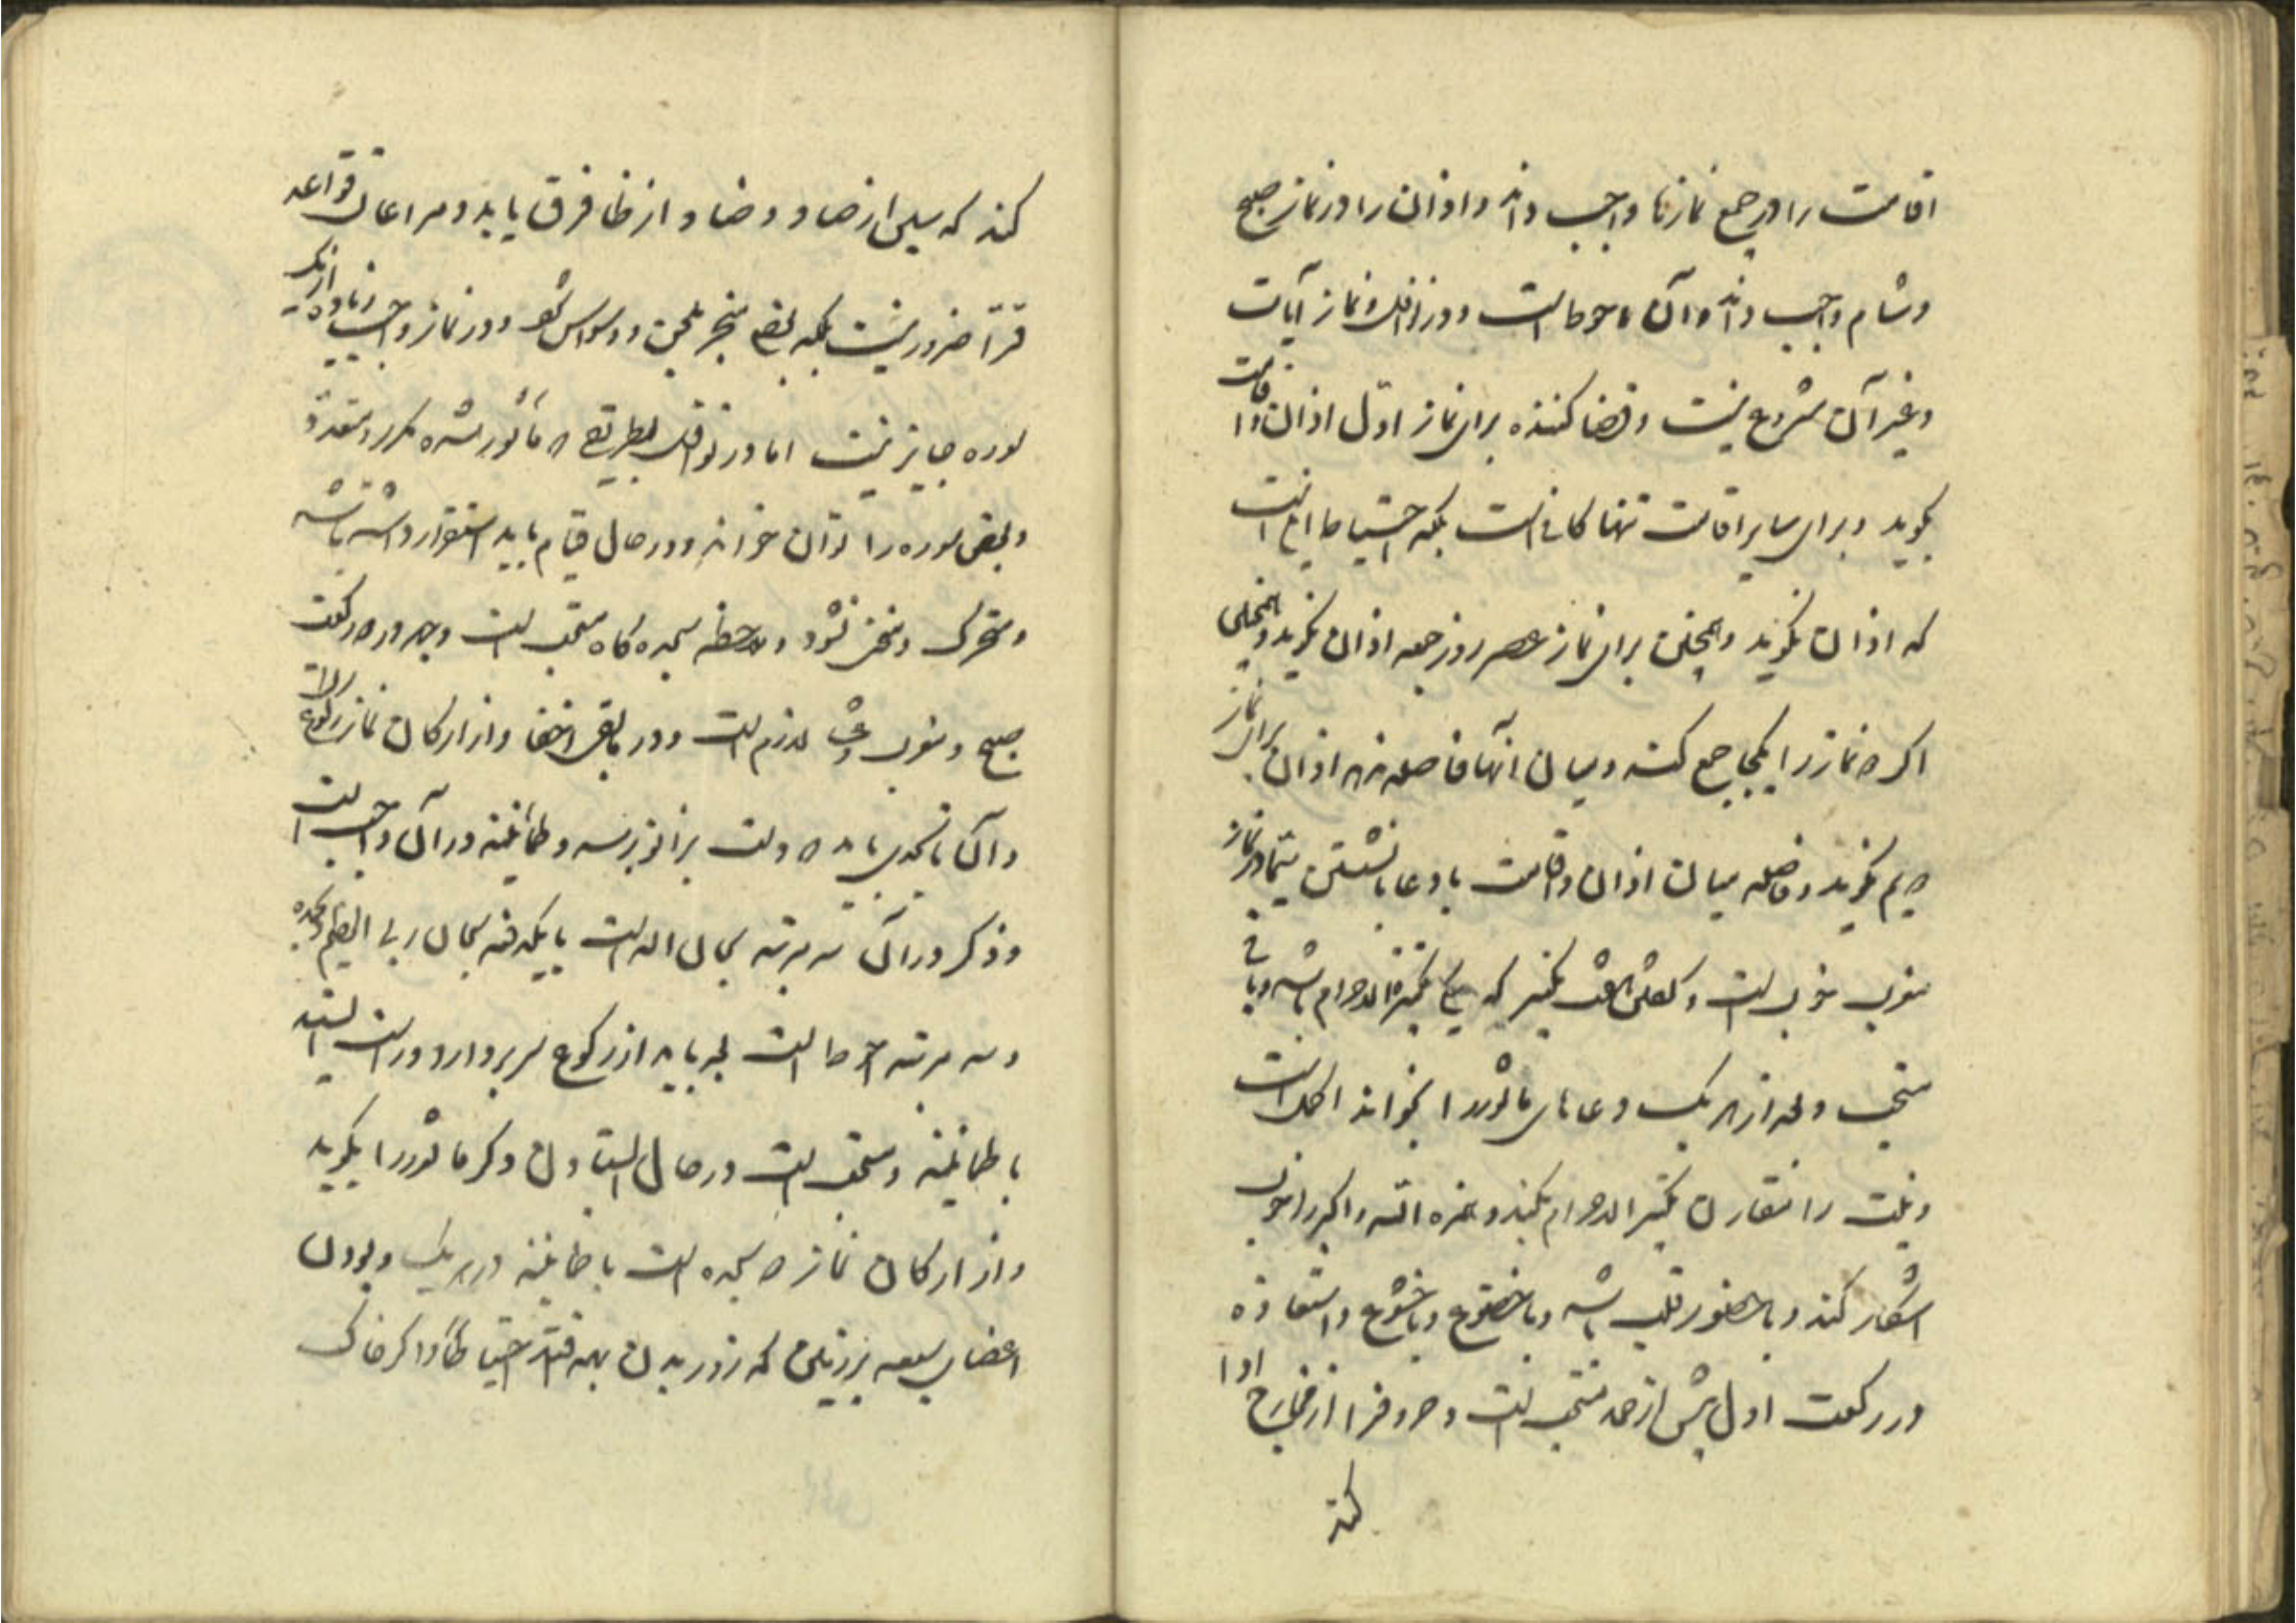 اقامت را در جمیع نمازها واجب داند و اذان را در نماز صبح
و شام واجب داند و آن احوط است و در نوافل و نماز آیات
و غیر آن مشروع نیست و قضا کننده برای نماز اول اذان و اقامت
بگوید و برای سایر اقامت تنها کافی است بلکه احتیاط این است
که اذان نگوید و همچنین برای نماز عصر روز جمعه اذان نگوید و همچنین
اگر ۲ نماز را یکجا جمع کند و میان آنها فاصله ندهد اذان برای نماز
۲ یم نگوید و فاصله میان اذان و اقامت با دعا یا نشستن سیما در نماز
مغرب خوب است و گفتن هفت تکبیر که یکی تکبیرة الاحرام باشد و باقی
مستحب و بعد از هر یک دعاهای مأثور را بخواند اکمل است
و نیت را مقارن تکبیر الاحرام بکند و همزه الله و اکبر را خوب
آشکار کند و با حضور قلب باشد و با خضوع و با خشوع و استعاذه
در رکعت اول پیش از حمد مستحب است و حروف را از مخارج ادا
کند
کند که سین از صاد و ضاد از ظا فرق یابد و مراعات قواعد
قرآ ضرور نیست بلکه بعضی منجر بلحن و وسواس شود و در نماز واجب زیاده از یک
سوره جایز نیست اما در نوافل بطریقی که مأثور شده مکرر و متعدد
و بعض سوره را توان خواند و در حال قیام باید استقرار داشته باشد
و متحرک و منحنی نشود و ملاحظه سجده گاه مستحب است و جهر در ۲ رکعت
صبح و مغرب و عشا لازم است و در باقی اخفا و از ارکان نماز رکوع است
و آن انحنای با ۲ دست بزانو برسد و طمأنینه در آن واجب است
و ذکر در آن سه مرتبه سبحان الله است یا یکدفعه سبحان ربی العظیم و بحمده
و سه مرتبه احوط است بعد باید از رکوع سر بردارد و راست ایستد
با طمأنینه و مستحب است در حال ایستادن ذکر مأثور را بگوید
و از ارکان نماز ۲ سجده است با طمأنینه در هر یک و بودن
اعضای سبعه بر زمین که زور بدن بهمه افتد احتیاطاً و اگر خاک